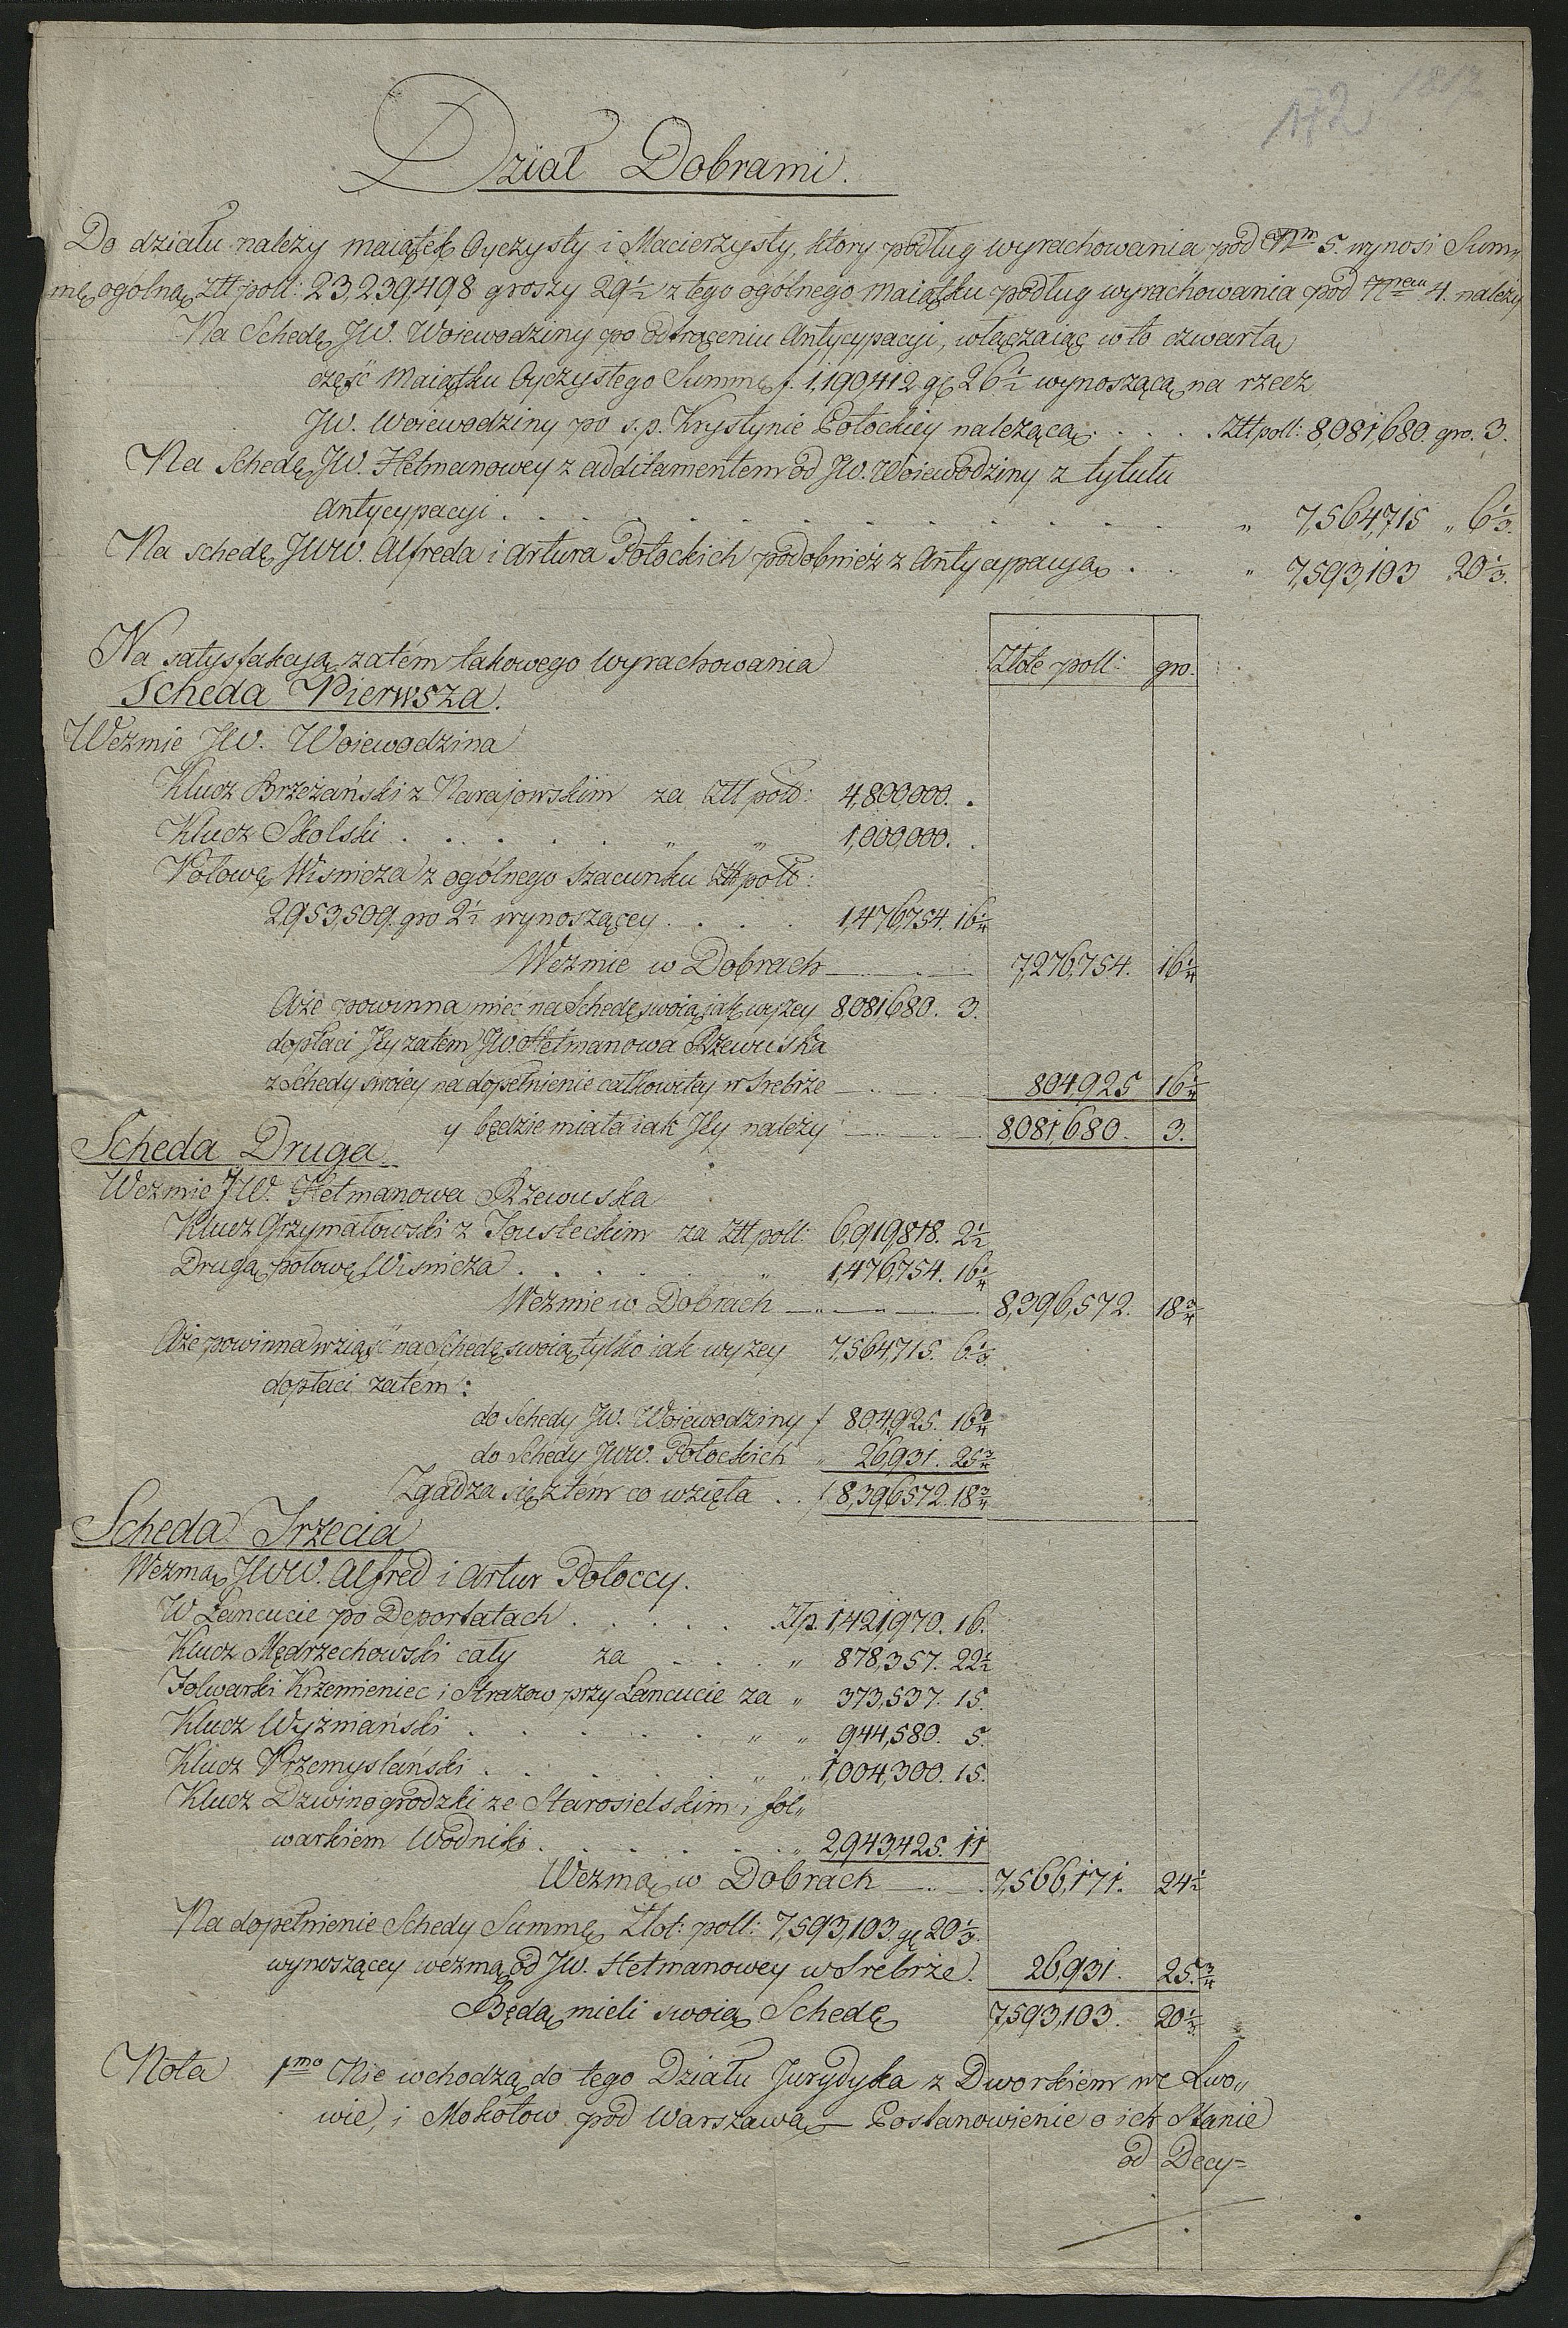 1817
172
Dział Dobrami.
Do działu należy maiątek Oyczysty i Macierzysty, który podług wyrachowania pod Nrm 5. wynosi Sum„
mę ogólną Ztt poll: 23,239,498 groszy 29½ z tego ogólnego maiątku podług wyrachowania pod Nrem 4. należy
Na Schedę JW. Woiewodziny po odtrąceniu Antycypacyi, włączaiąc w to czwartą
część Maiątku Oyczystego Summę f. 1,190,412 gr 26½ wynoszącą na rzecz
JW. Woiewodziny po s.p. Krystynie Potockiey należącą . . . . Ztt poll: 8,081,680. gro. 3.
Na Schedę JW. Hetmanowey z additamentem od JW. Woiewodziny z tytułu
Antycypacyi . . . . . . . . . . . „ 7,564,715 „ 6⅓.
Na schedę JWW. Alfreda i Artura Potockich podobnież z Antycypacyą . . . „ 7,593,103 20⅓.
Na satysfakcyą zatém takowego wyrachowania Złote poll: gro.
Scheda Pierwsza.
Weźmie JW. Woiewodzina
Klucz Brzeżański z Narajowskim za Ztt poll: 4,800,000. .
Klucz Skolski . . . . . . „ „ 1,000,000. .
Połowę Wisnicza z ogólnego szacunku Ztt poll:
2,953,509. gro 2½ wynoszącey . . . . 1,476,754. 16¼
Weźmie w Dobrach 7,276,754. 16¼
Aże powinna mieć na Schedę swoią jak wyżey 8,081,680. 3.
dopłaci Jey zatém JW. Hetmanowa Rzewuska
z Schedy swoiey na dopełnienie całkowitey w Srebrze 804,925 16¾
y będzie miała iak Jey należy 8,081,680. 3.
Scheda Druga
Weźmie JW. Hetmanowa Rzewuska
Klucz Grzymałowski z Touste­ckim za Ztt poll: 6,919,818. 2½
Drugą połowę Wisnicza . . . . . „ 1,476,754. 16¼
Weźmie w Dobrach 8,396,572. 18¾
Aże powinna wziąść na Schedę swoią tylko iak wyżey 7,564,715. 6⅓.
dopłaci zatém:
do Schedy JW. Woiewodziny f 804,925. 16¾
do Schedy JWW. Potockich „ 26,931. 25¾
Zgadza się z tém co wzięła . . f 8,396,572. 18¾
Scheda Trzecia
Wezmą JWW. Alfred i Artur Potoccy.
W Łancucie po Deportatach . . . . . Ztp. 1,421,970. 16.
Klucz Mędrzechowski cały za . . . „ 878,357. 22½
Folwarki Krzemieniec i Strazow przy Łancucie za „ 373,537. 15.
Klucz Wyżniański . . . . . . „ „ 944,580. 5.
Klucz Przemyslański . . . . . . „ „ 1,004,300. 15.
Klucz Dzwinogrodzki ze Starosielskim i fol„
warkiem Wodniki . . . . . . „ 2,943,425. 11
Wezmą w Dobrach 7,566,171. 24½
Na dopełnienie Schedy Summę Złot: poll: 7,593,103. gr 20⅓.
wynoszącey wezmą od JW. Hetmanowey w Srebrze. 26,931. 25.¾
Będą mieli swoią Schedę 7,593,103. 20⅓.
Nota 1mo Nie wchodzą do tego Działu Jurydyka z Dworkiem we Lwo„
wie, i Mokotow pod Warszawą — Postanowienie o ich Stanie
od Decy=